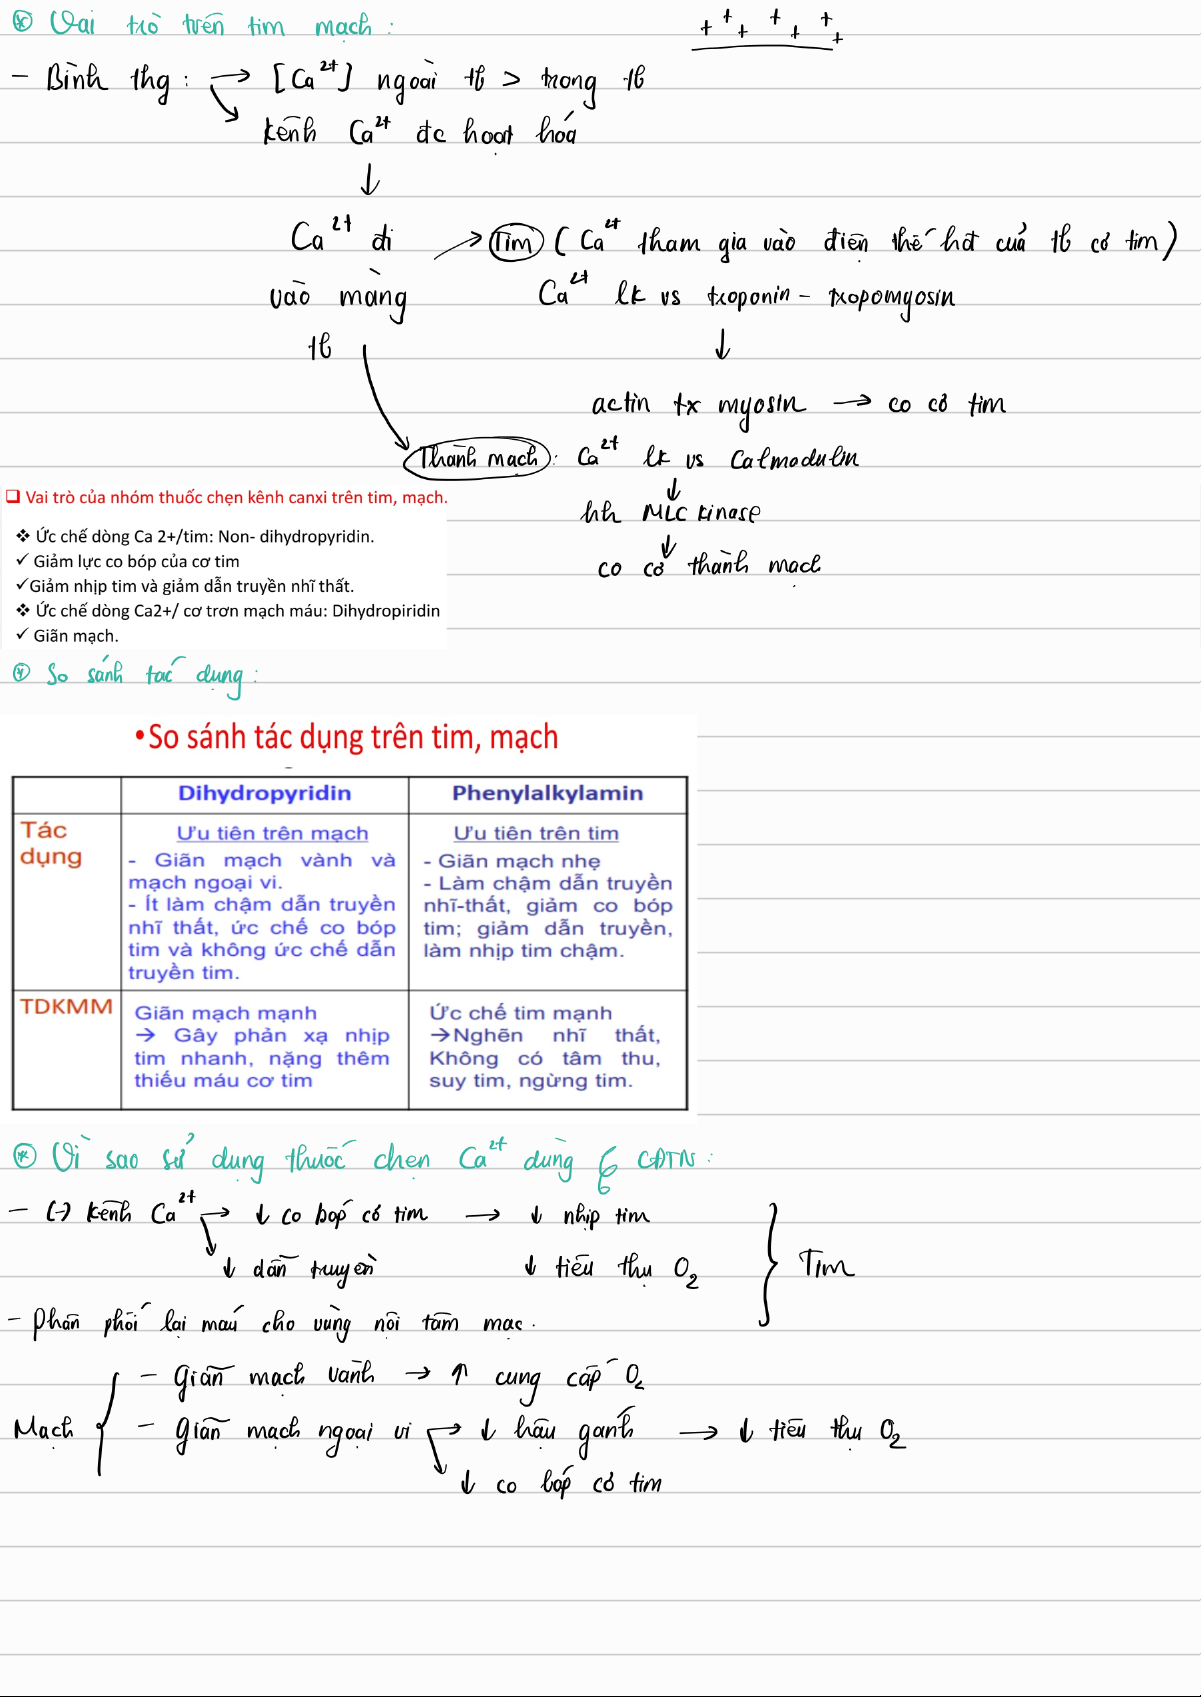 ⊛ Vai trò trên tim mạch :
+ + + + + + +
- Bình thg : → [Ca²⁺] ngoài tb > trong tb
↘ kênh Ca²⁺ đc hoạt hóa
↓
Ca²⁺ đi vào màng tb
→ Tim ( Ca²⁺ tham gia vào điện thế hđ của tb cơ tim )
Ca²⁺ lk vs troponin - tropomyosin
↓
actin tx myosin → co cơ tim
Thành mạch : Ca²⁺ lk vs Calmodulin
↓
hh MLC kinase
↓
co cơ thành mạch
❑ Vai trò của nhóm thuốc chẹn kênh canxi trên tim, mạch.
❖ Ức chế dòng Ca 2+/tim: Non- dihydropyridin.
✓ Giảm lực co bóp của cơ tim
✓Giảm nhịp tim và giảm dẫn truyền nhĩ thất.
❖ Ức chế dòng Ca2+/ cơ trơn mạch máu: Dihydropiridin
✓ Giãn mạch.
⊛ So sánh tác dụng :
•So sánh tác dụng trên tim, mạch
Dihydropyridin
Phenylalkylamin
Tác dụng
Ưu tiên trên mạch
- Giãn mạch vành và
mạch ngoại vi.
- Ít làm chậm dẫn truyền
nhĩ thất, ức chế co bóp
tim và không ức chế dẫn
truyền tim.
Ưu tiên trên tim
- Giãn mạch nhẹ
- Làm chậm dẫn truyền
nhĩ-thất, giảm co bóp
tim; giảm dẫn truyền,
làm nhịp tim chậm.
TDKMM
Giãn mạch mạnh
→ Gây phản xạ nhịp
tim nhanh, nặng thêm
thiếu máu cơ tim
Ức chế tim mạnh
→Nghẽn nhĩ thất,
Không có tâm thu,
suy tim, ngừng tim.
⊛ Vì sao sử dụng thuốc chẹn Ca²⁺ dùng CĐTN :
- (-) kênh Ca²⁺ → ↓ co bóp cơ tim → ↓ nhịp tim
↘ ↓ dẫn truyền ↓ tiêu thụ O₂
} Tim
- Phân phối lại máu cho vùng nội tâm mạc.
Mạch {
- Giãn mạch vành → ↑ cung cấp O₂
- Giãn mạch ngoại vi → ↓ hậu gánh → ↓ tiêu thụ O₂
↘ ↓ co bóp cơ tim